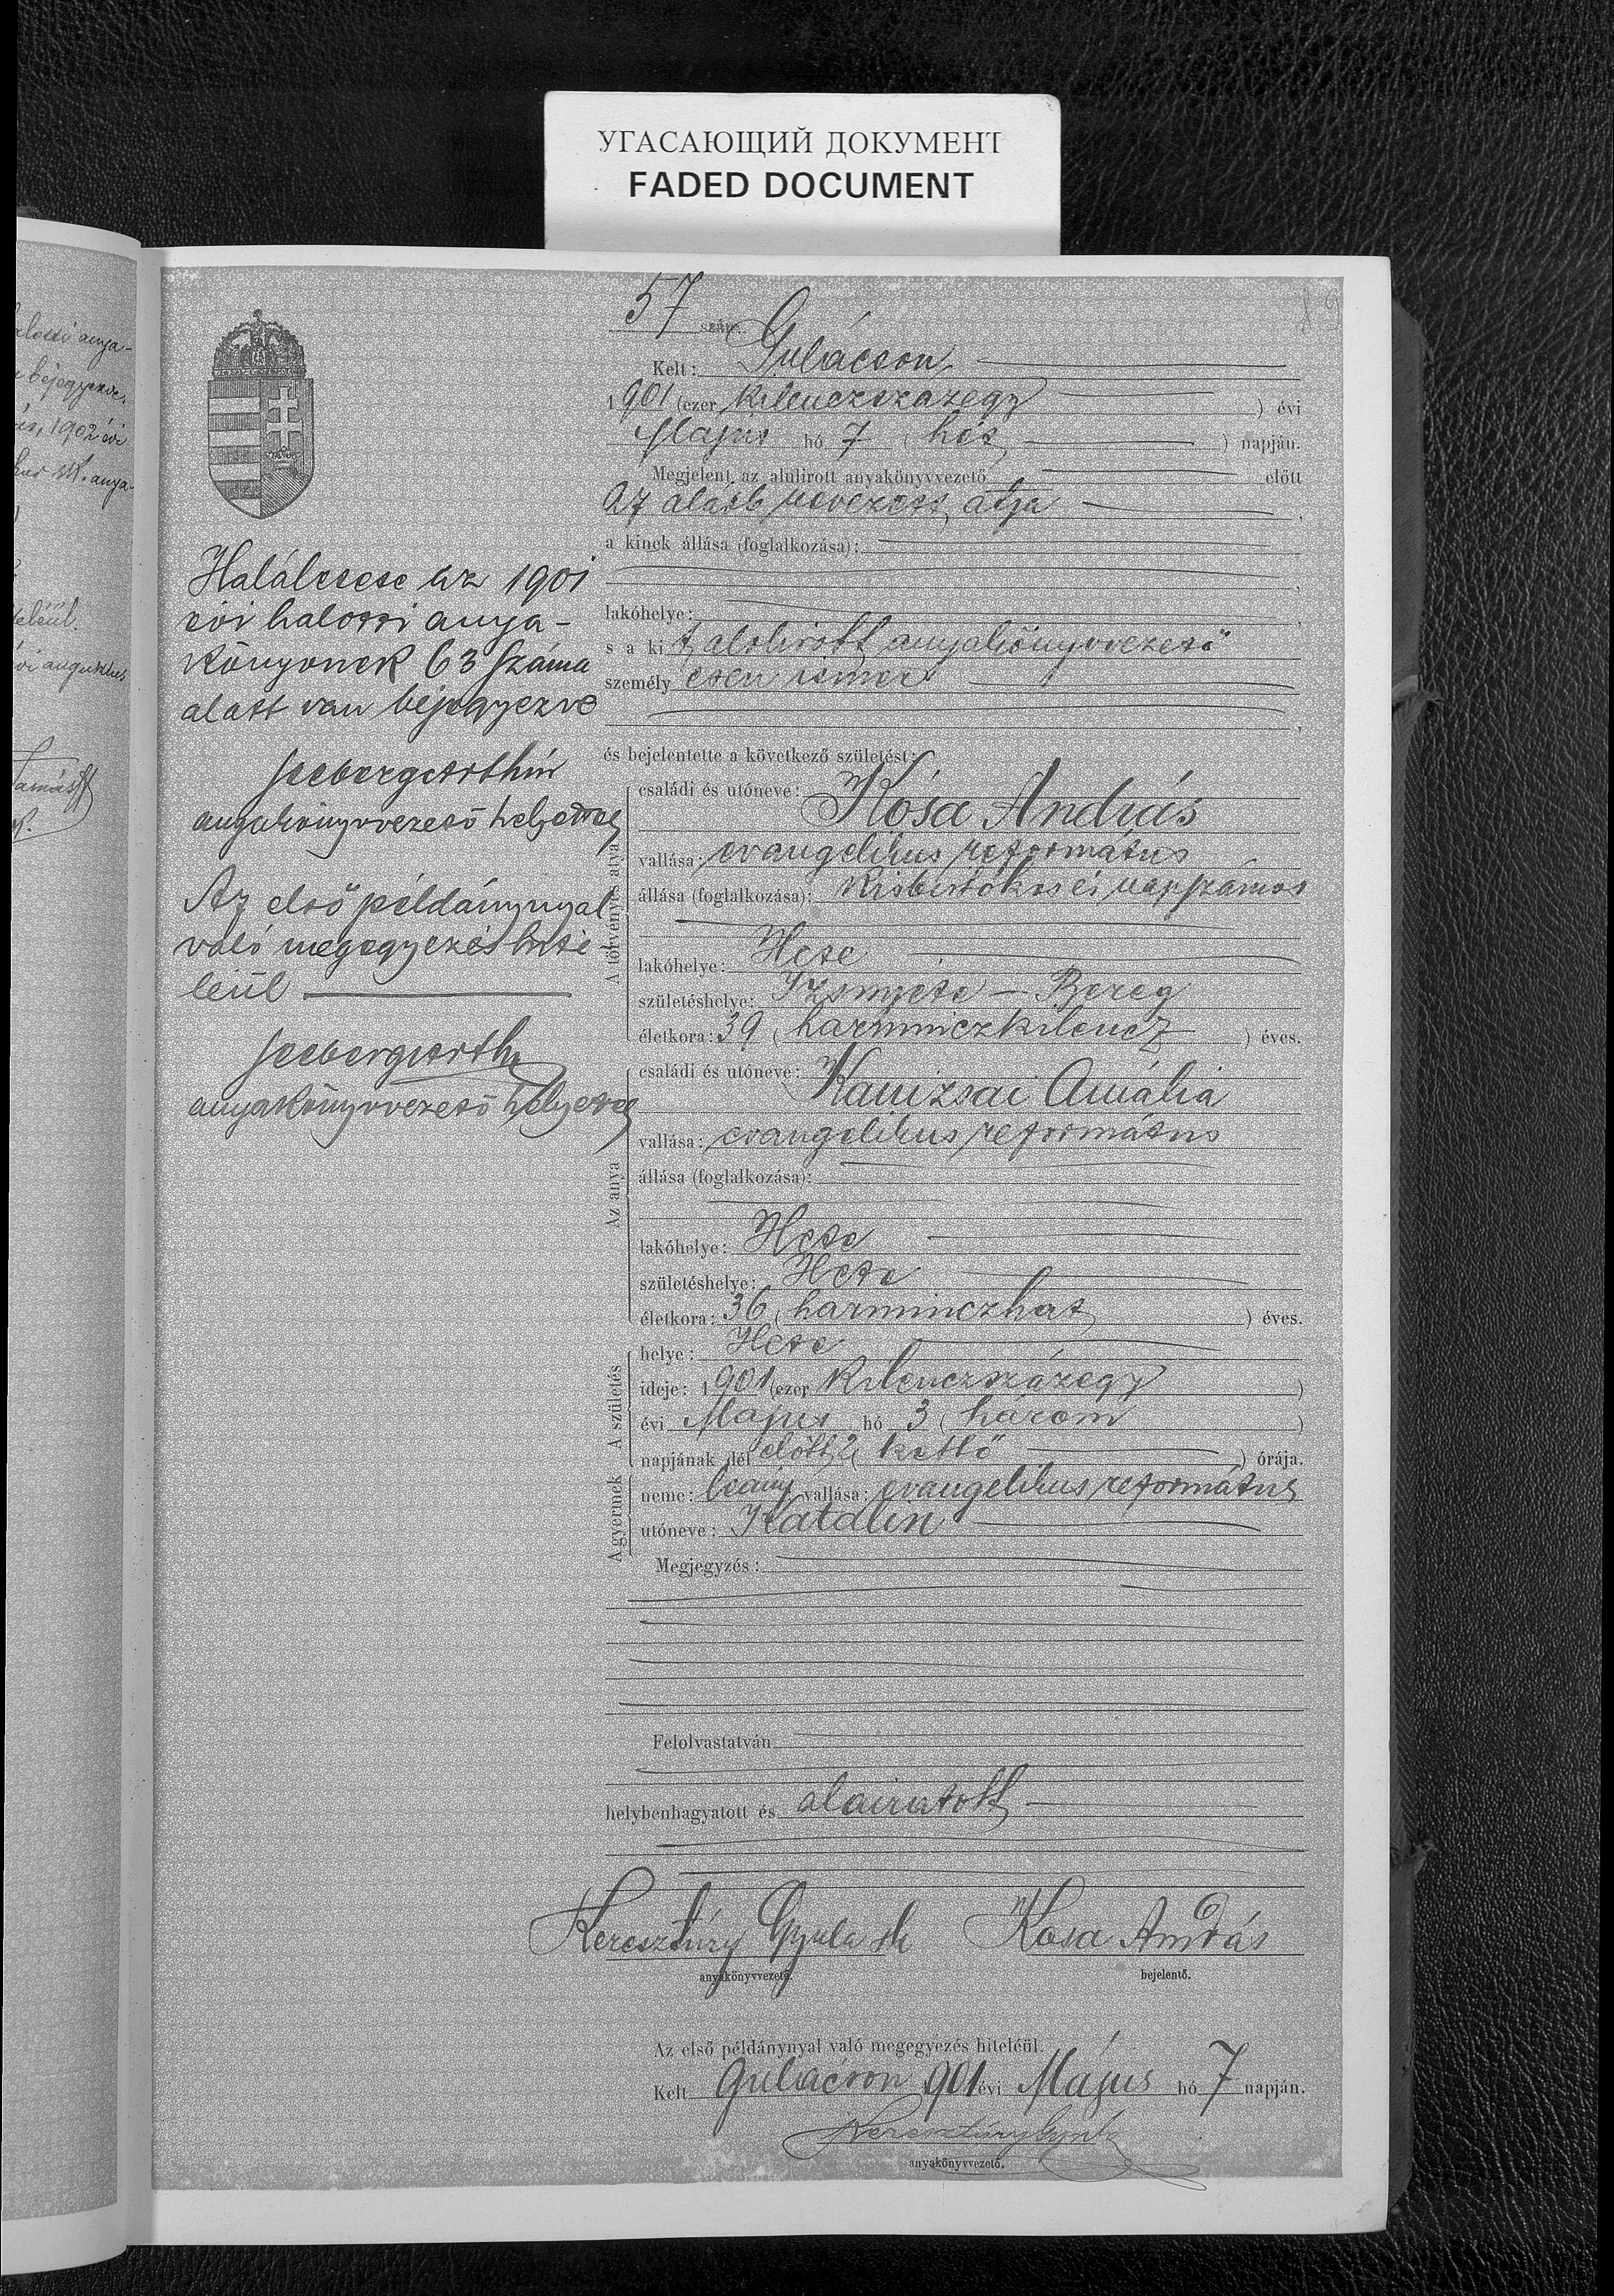 УГАСАЮЩИЙ ДОКУМЕНТ
FADED DOCUMENT
57 szám.
Kelt: Gulácson
1901 (ezer kilenczszázegy) évi
Május hó 7 (hét) napján.
Megjelent az alulirott anyakönyvvezető előtt
az alább nevezett atya
a kinek állása (foglalkozása):
lakóhelye:
s a kit alulirott anyakönyvvezető
személyesen ismer
és bejelentette a következő születést:
A törvényes atya
családi és utóneve: Kósa András
vallása: evangelikus református
állása (foglalkozása): kisbirtokos és napszámos
lakóhelye: Hete
születéshelye: Izsnyéte – Bereg
életkora: 39 (harminczkilencz) éves.
Az anya
családi és utóneve: Kanizsai Amália
vallása: evangelikus református
állása (foglalkozása):
lakóhelye: Hete
születéshelye: Hete
életkora: 36 (harminczhat) éves.
A születés
helye: Hete
ideje: 1901 (ezer kilenczszázegy)
évi Május hó 3 (három)
napjának dél előtt 2 (kettő) órája.
A gyermek
neme: leány vallása: evangelikus református
utóneve: Katalin
Megjegyzés:
Felolvastatván
helybenhagyatott és aláiratott
Keresztúry Gyula sk Kosa András
anyakönyvvezető. bejelentő.
Az első példánynyal való megegyezés hiteléül.
Kelt Gulácson 901 évi Május hó 7 napján.
Keresztúry Gyula
anyakönyvvezető.
Halálesete az 1901
évi halotti anya-
könyvnek 63 száma
alatt van bejegyezve
anyakönyvvezető helyettes
Az első példánynyal
való megegyezés hite-
léül
anyakönyvvezető helyettes
anya-
bejegyezve.
1902 évi
anya-
évi augusztus